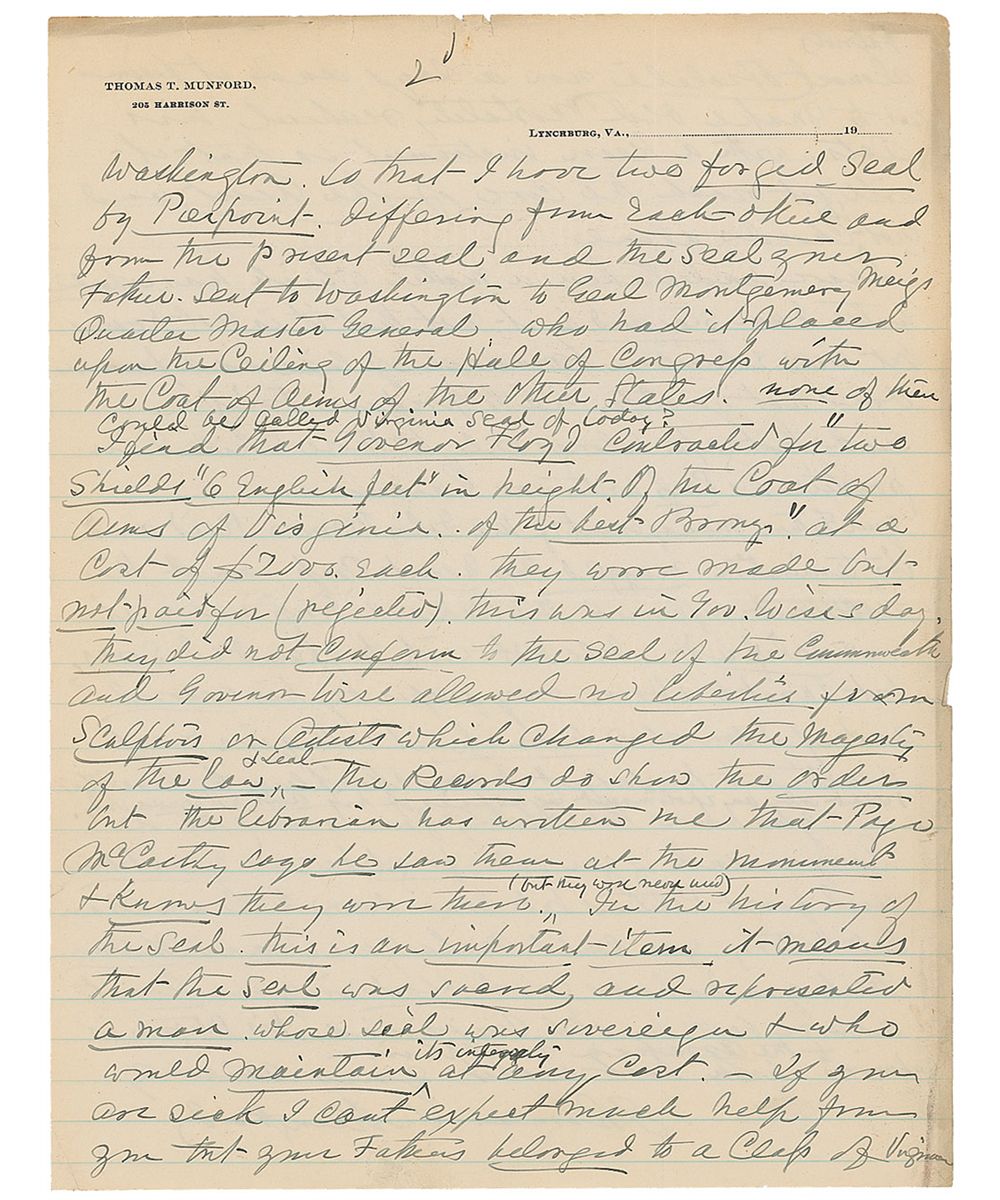 2
THOMAS T. MUNFORD,
205 HARRISON ST.
LYNCHBURG, VA., 19
Washington. so that I have two forged Seal
by Pierpoint. differing from Each other and
from the present seal and the seal your
Father. sent to Washington to Genl Montgomery Meigs
Quarter Master General who had it placed
upon the Ceiling of the Halle of Congress with
the Coat of Arms of the other States. none of them
could be called Virginia Seal of today?
I find that Govenor Floyd Contracted for "two
Shields "6 English feet" in height. Of the Coat of
Arms of Virginia. of the best Bronze" at a
Cost of $2000. Each. they were made but
not paid for (rejected). this was in Gov. Wises day.
they did not Conform to the Seal of the Commonwealth
and Govenor Wise allowed no liberties from
Sculptors or Artists which Changed the Magesty
of the law & seal – the Records do show the orders
but the librarian has written me that Page
McCarthy says he saw them at the Monument
& Knows they were there (but they were never used)." In the history of
the Seal. this is an important item it means
that the Seal was sacred, and represented
a man whose seal was sovereign & who
would maintain its integrity at any Cost. – If you
are sick I cant expect much help from
you but your Fathers belonged to a Class of Virginian